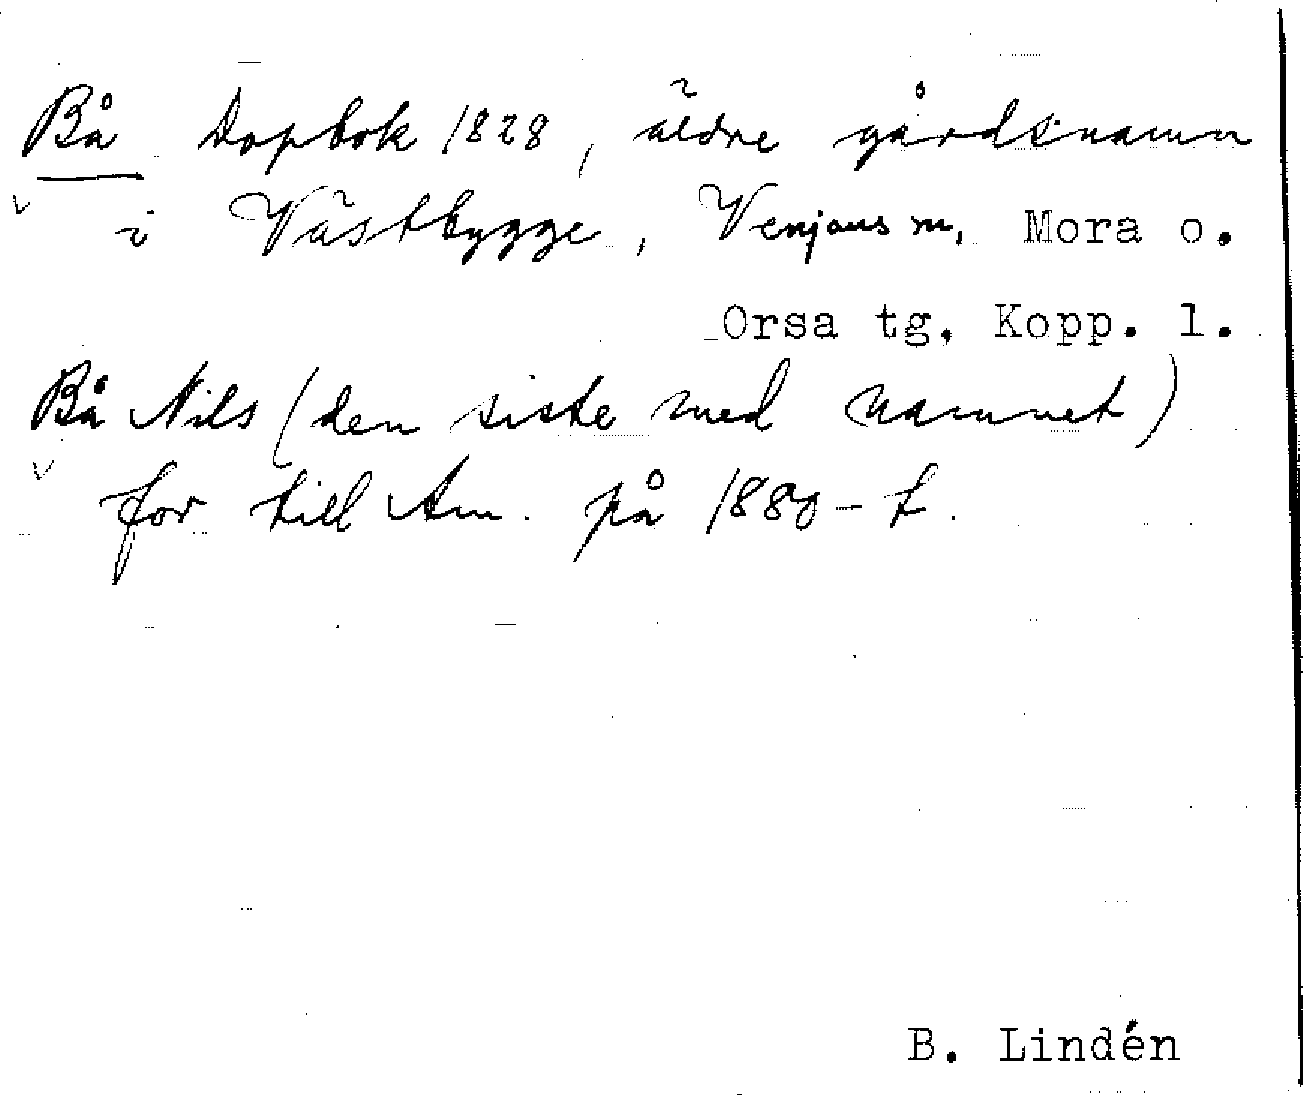 Bå Dopbok 1828, äldre gårdsnamn
i Västbygge, Venjans sn, Mora o.
Orsa tg, Kopp. l.
Bå Nils (den siste med namnet)
for till Am. på 1880-t.
B. Lindén